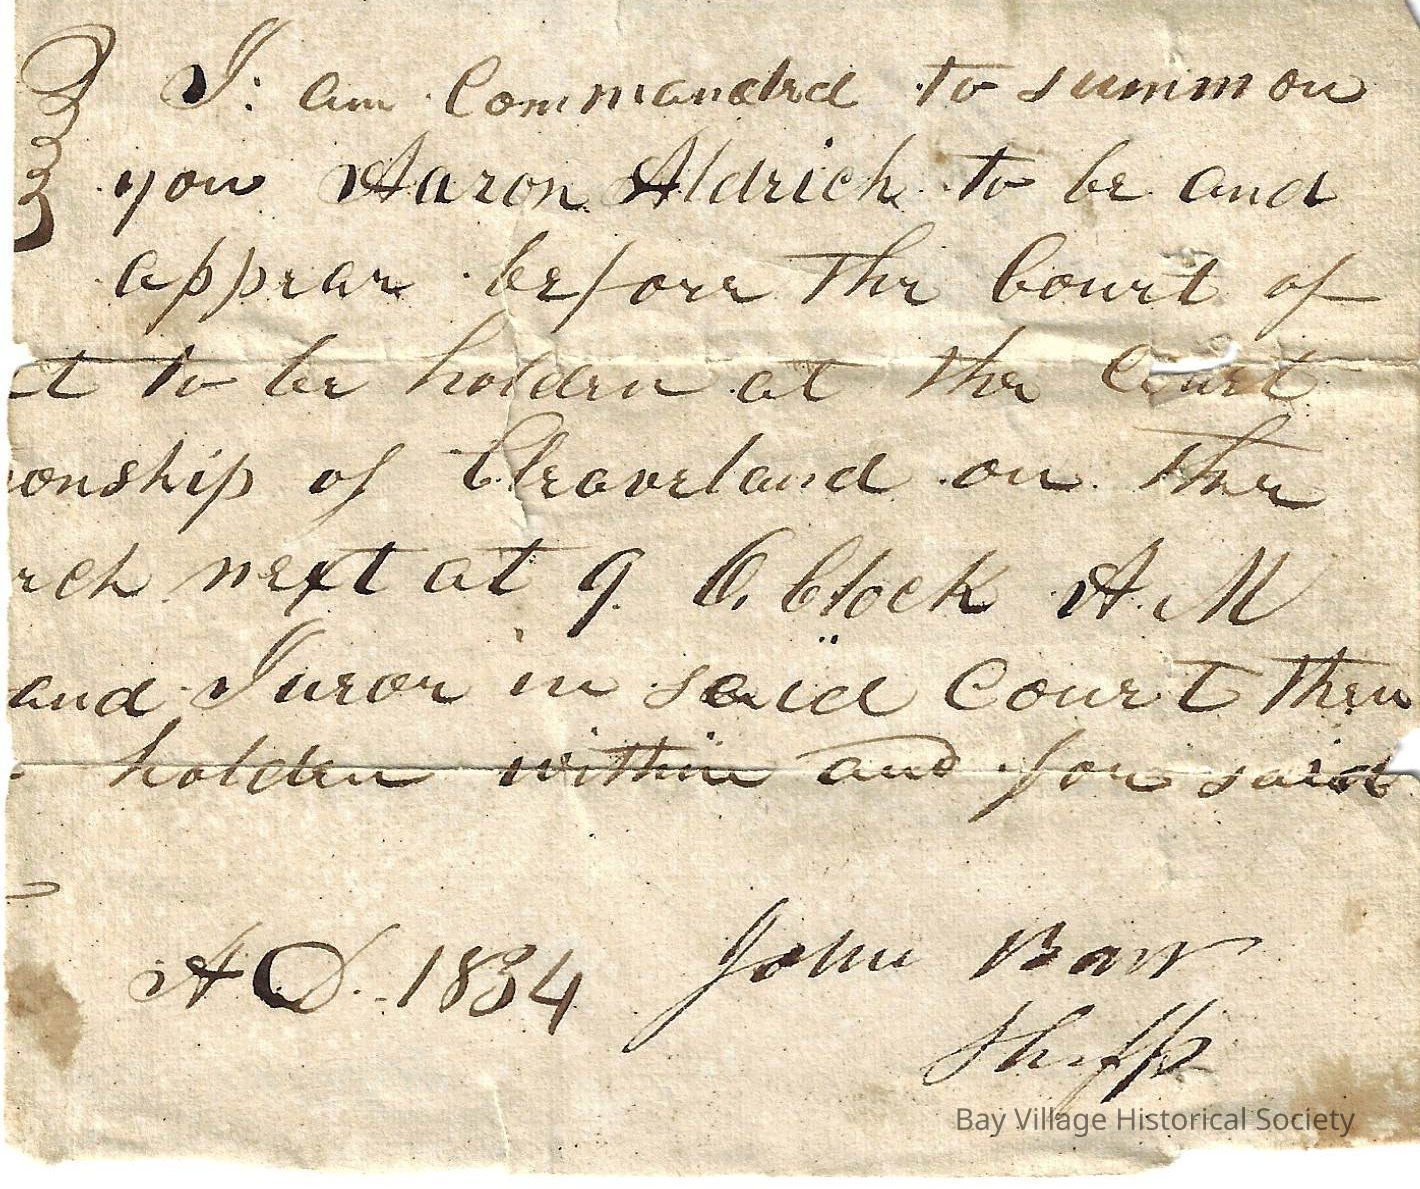 I: am Commanded to summon
you Aaron Aldrich to be and
appear before the Court of
t to be holden at the Court
onship of Cleaveland on the
rch next at 9. O, Clock A. M
and Juror in said Court then
holden within and for said
A D. 1834 John Barr
Shff
Bay Village Historical Society